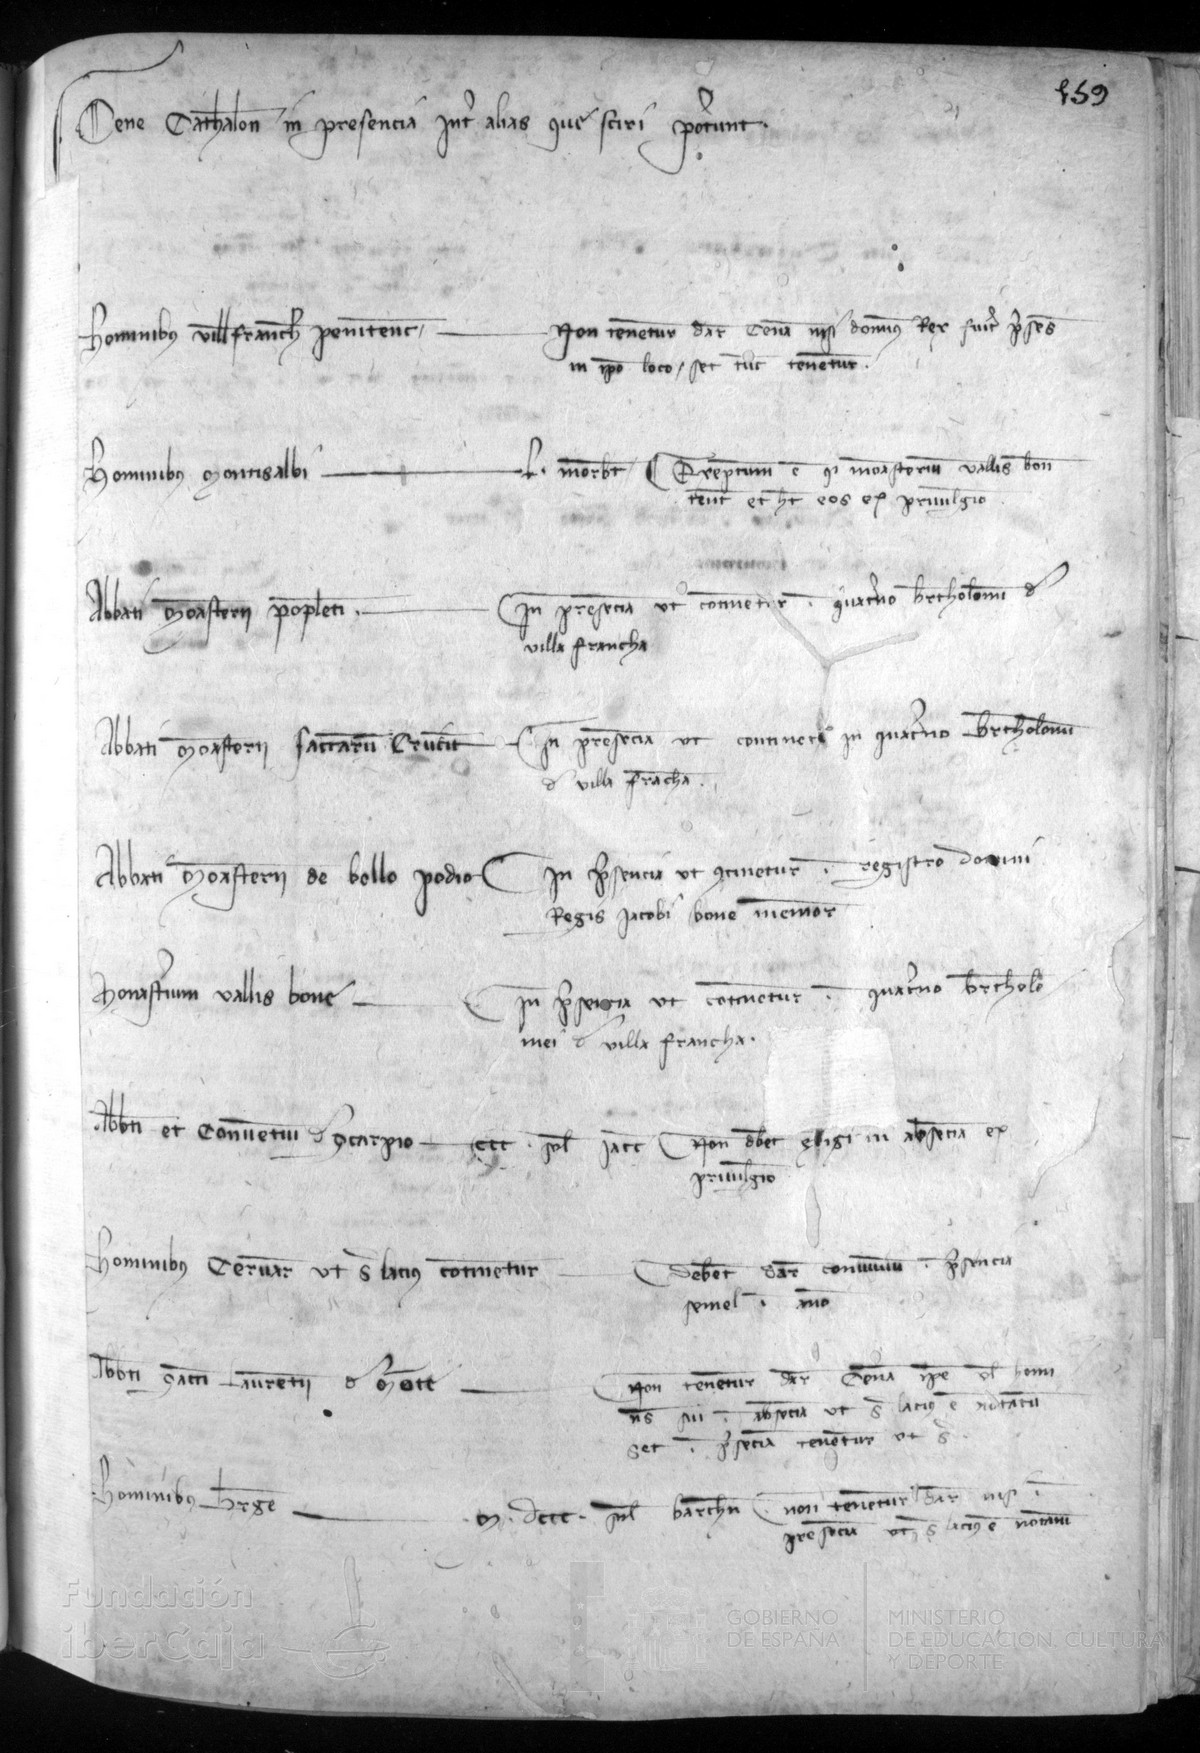 159
Cene Cathalon in presencia int alias que sciri potunt.
Hominibus villefranch penitenc
Non tenentur dar Cena nisi domnus Rex fuit psens
in ipo loco / set tuc tenentur.
Hominibus Montisalbi
morbt Ereptum e q monasterium vallis bon
tenet et ht eos ex privilgio
Abbati Monasterii popleti.
In presecia ut continetur i quaterno brtholomi d
villa francha
Abbati Monasterii sactarum Crucu
In presecia ut continetur in quaterno Brtholomi
d villa fracha.
Abbati Monasterii de bello podio
In psencia ut continetur i registro domini
Regis Jacobi bone memor
Monasterium vallis bone
In psencia ut continetur i quaterno brtholo
mei d villa francha.
Abbti et Conventui d Scarpio
ccc . sol Jacc Non dbet exigi in absecia ex
privilgio
Hominibus Cervar ut s lacius continetur
debet dar convivium i psencia
semel i ano
Abbti Sacti Laurentii d Mote
Non tenentur dar Cena ipe vl homi
nes sui i absecia ut s lacius e notatum
set i psecia tenentur ut s
Hominibus Brge
M. dccc. sol barchn non tenentur dar nisi i
presecia ut s lacius e notatum
Fundación
iberCaja
GOBIERNO
DE ESPAÑA
MINISTERIO
DE EDUCACIÓN, CULTURA
Y DEPORTE